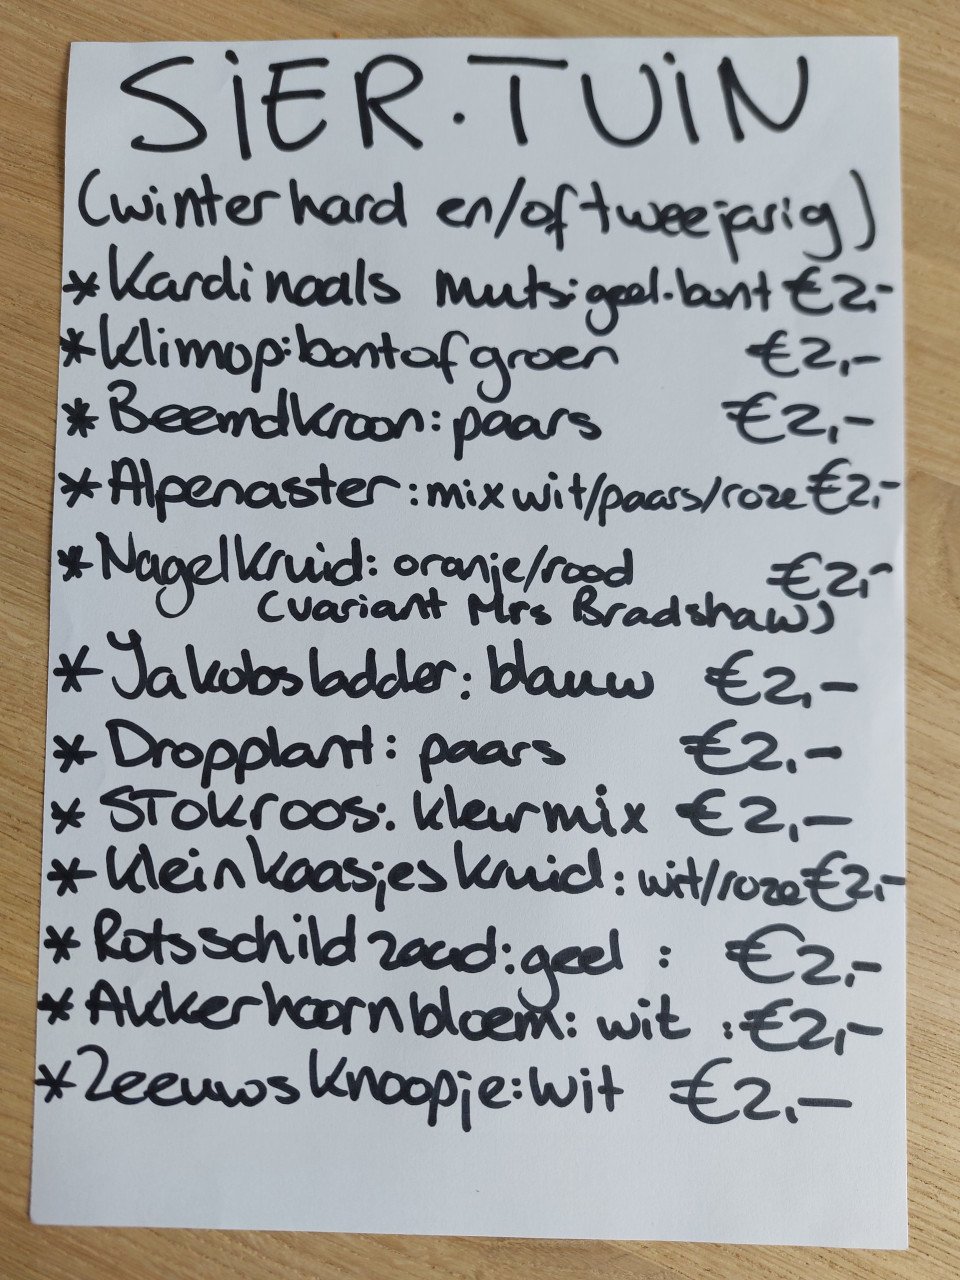 SiER.TUiN
(winterhard en/of tweejarig)
* Kardinaals muts: geel.bont €2,-
* Klimop: bont of groen €2,-
* Beemdkroon: paars €2,-
* Alpenaster: mix wit/paars/roze €2,-
* Nagelkruid: oranje/rood €2,-
(variant Mrs Bradshaw)
* Jakobsladder: blauw €2,-
* Dropplant: paars €2,-
* STokroos: kleurmix €2,-
* Klein kaasjeskruid: wit/roze €2,-
* Rotsschildzaad: geel : €2,-
* Akkerhoornbloem: wit : €2,-
* Zeeuws Knoopje: wit €2,-